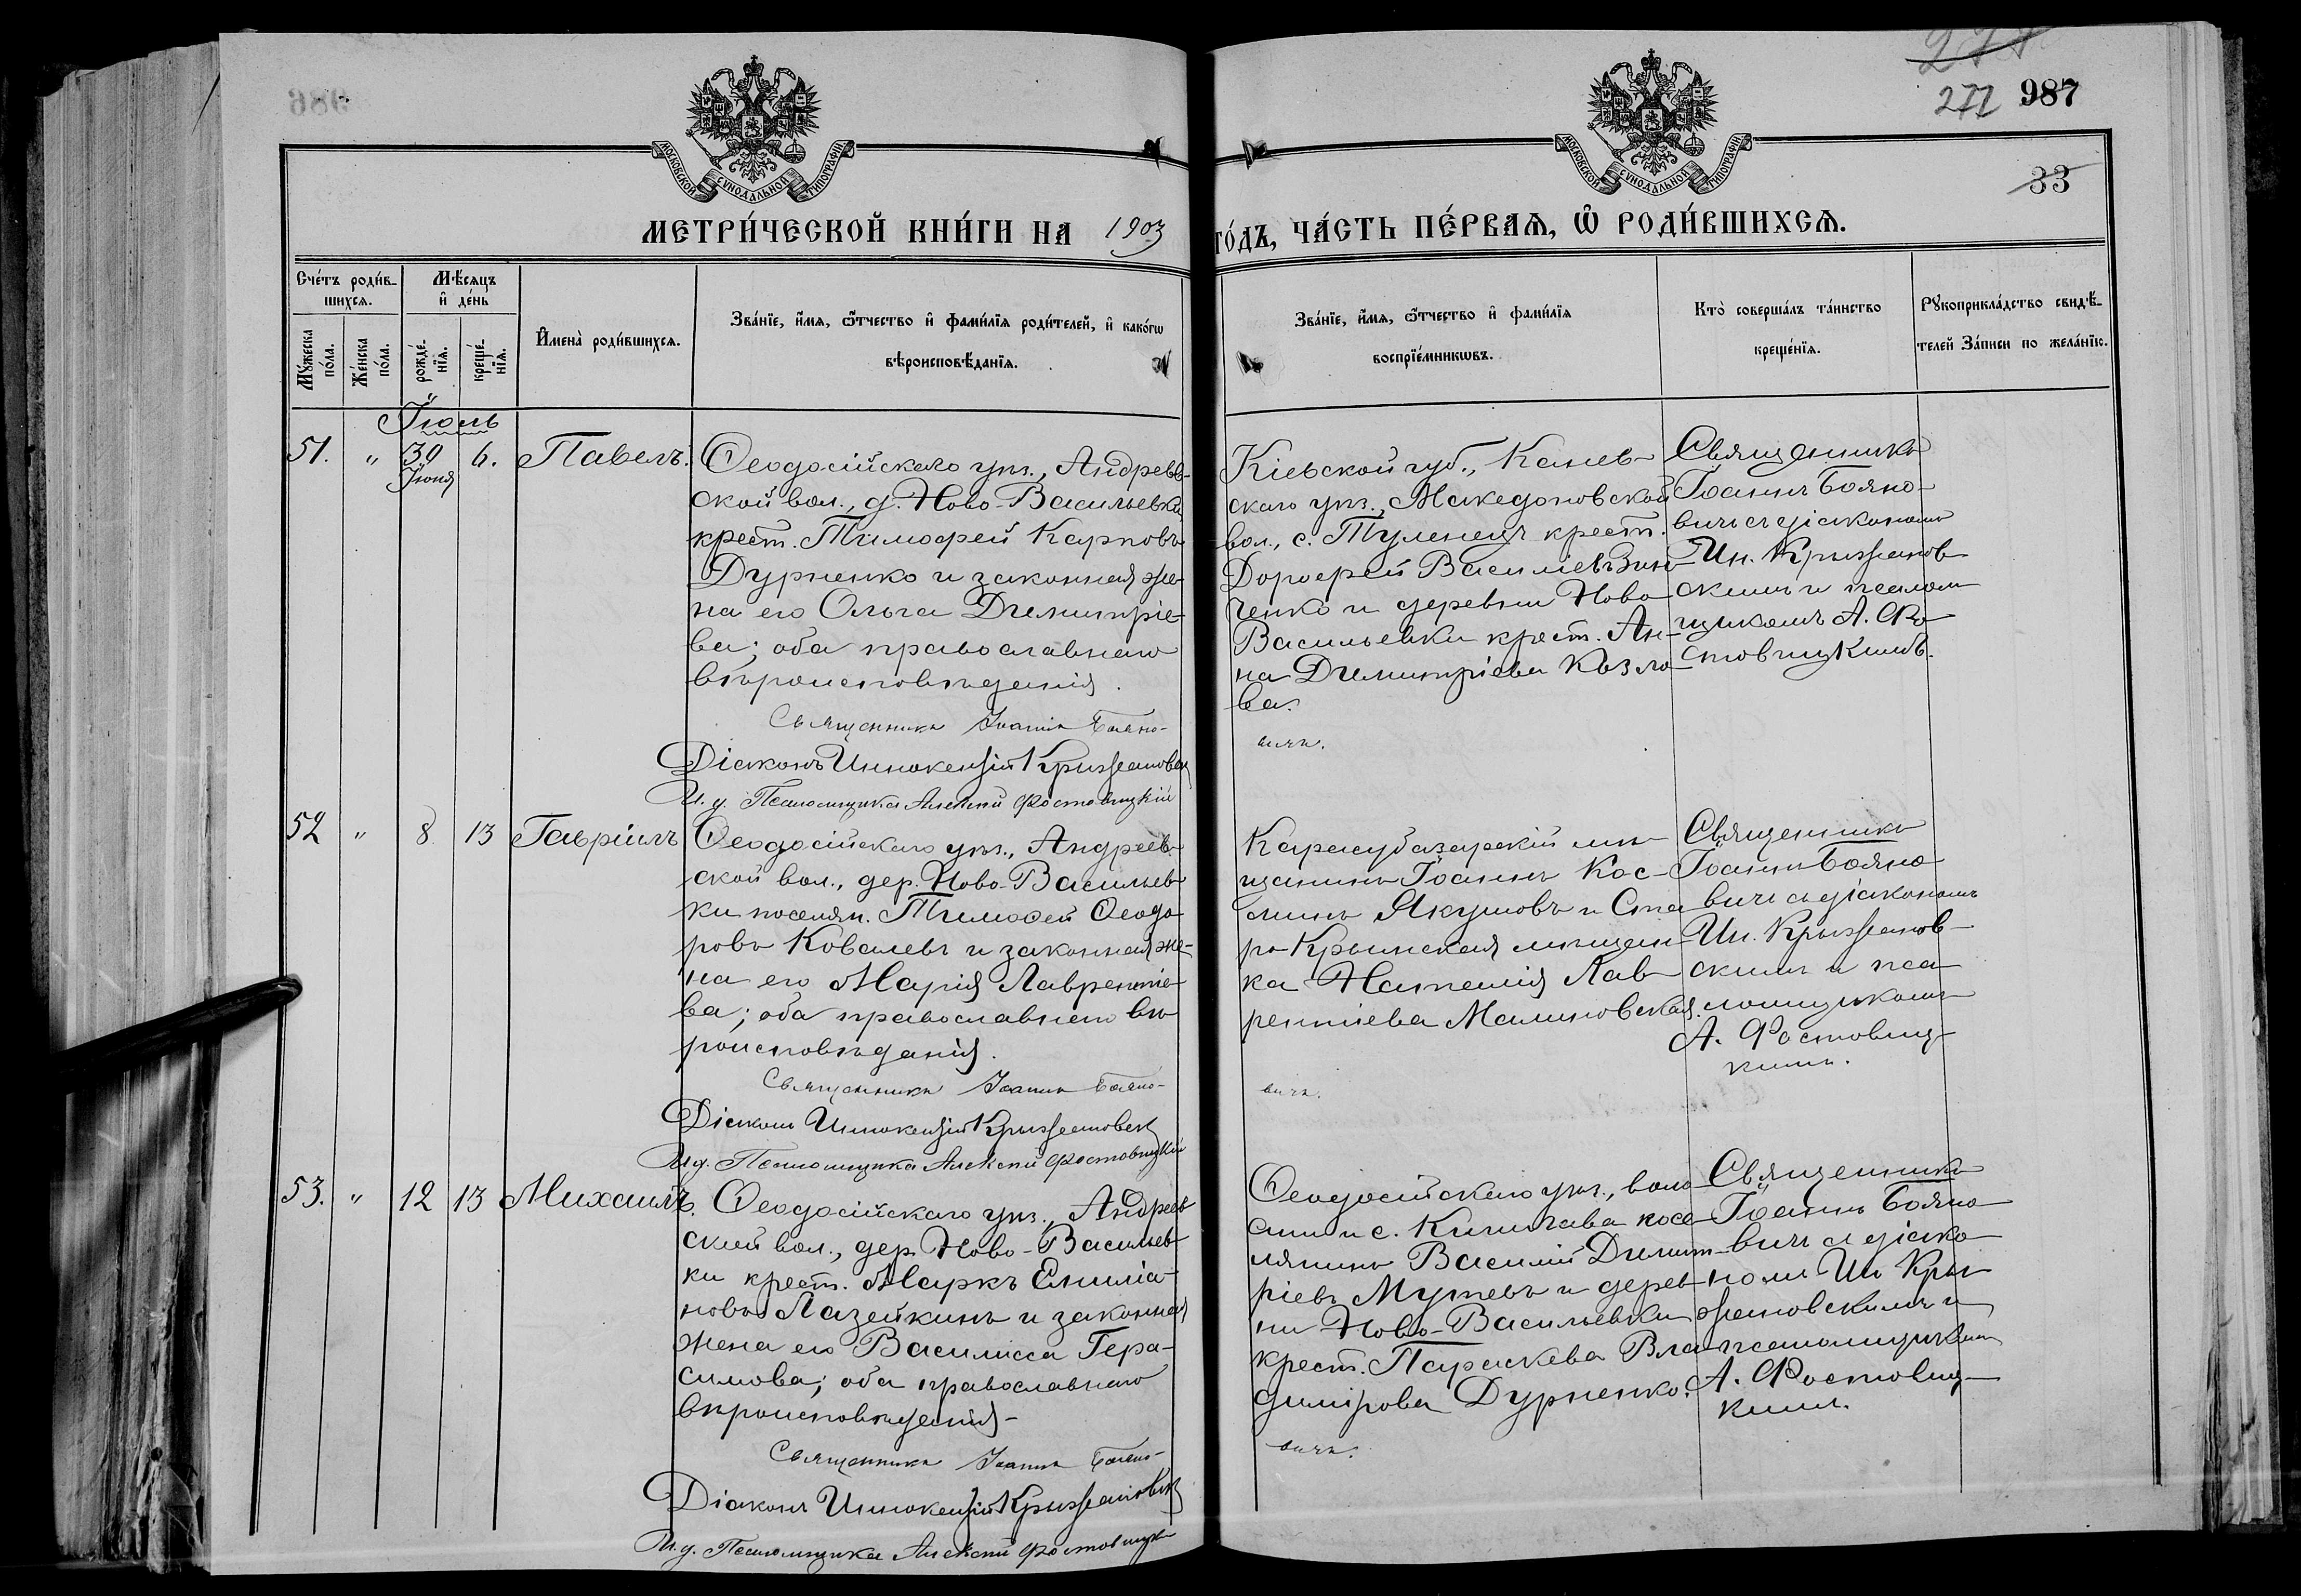 986
277
272 987
33
МОСКОВСКОЙ СѴНОДАЛЬНОЙ ТИПОГРАФІИ
МОСКОВСКОЙ СѴНОДАЛЬНОЙ ТИПОГРАФІИ
МЕТРИ́ЧЕСКОЙ КНИ́ГИ НА 1903 ГО́ДЪ, ЧА́СТЬ ПЕ́РВАѦ, Ѡ҆ РОДИ́ВШИХСѦ.
Сче́тъ роди́в-
шихсѧ.
Мꙋ́жеска
по́ла.
Же́нска
по́ла.
Мѣ́сѧцъ
и҆ де́нь
рожде́-
нїѧ.
креще́-
нїѧ.
И҆мена̀ роди́вшихсѧ.
Зва́нїе, и҆́мѧ, ѻ҆́тчество и҆ фами́лїѧ роди́телей, и҆ како́гѡ
вѣроисповѣ́данїѧ.
Зва́нїе, и҆́мѧ, ѻ҆́тчество и҆ фами́лїѧ
воспрїе́мникѡвъ.
Кто̀ соверша́лъ та́инство
креще́нїѧ.
Рꙋкоприкла́дство свидѣ́-
телей За́писи по жела́нїю.
Іюль
51. " 30 6. Павелъ.
Іюня
Ѳеодосійскаго уѣз., Андреев-
ской вол., д. Ново-Васильевки,
крест. Тимоѳей Карповъ
Дурненко и законная же-
на его Ольга Димитріе-
ва; оба православнаго
вѣроисповѣданія.
Священникъ Іоаннъ Бояно-
вичъ.
Діаконъ Иннокентій Крыжановскій
И. д. Псаломщика Алексій Ростовицкій
Кіевской губ., Канев-
скаго уѣз., Македоновской
вол., с. Тулинецъ крест.
Дороѳей Василіевъ Зин-
ченко и деревни Ново-
Васильевки крест. Ан-
на Димитріева Козло-
ва.
Священникъ
Іоаннъ Бояно-
вичъ съ діакономъ
Ин. Крыжанов-
скимъ и псалом-
щикомъ А. Ро-
стовицкимъ.
52 " 8 13 Гавріилъ
Ѳеодосійскаго уѣз., Андреев-
ской вол., дер. Ново-Васильев-
ки поселян. Тимоѳей Ѳеодо-
ровъ Ковалевъ и законная же-
на его Марія Лаврентіе-
ва; оба православнаго вѣ-
роисповѣданія.
Священникъ Іоаннъ Бояно-
вичъ.
Діаконъ Иннокентій Крыжановскій
И. д. Псаломщика Алексій Ростовицкій
Карасубазарскій мѣ-
щанинъ Іоаннъ Кос-
минъ Якушовъ и Ста-
ро-Крымская мѣщан-
ка Наталія Лав-
рентіева Малиновская.
Священникъ
Іоаннъ Бояно-
вичъ съ діакономъ
Ин. Крыжанов-
скимъ и пса-
ломщикомъ
А. Ростовиц-
кимъ.
53. " 12 13 Михаилъ.
Ѳеодосійскаго уѣз., Андреев-
ской вол., дер. Ново-Васильев-
ки крест. Маркъ Емиліа-
новъ Лазейкинъ и законная
жена его Василисса Гера-
симова; оба православнаго
вѣроисповѣданія-
Священникъ Іоаннъ Бояно-
вичъ.
Діаконъ Иннокентій Крыжановскій
И. д. Псаломщика Алексій Ростовицкій
Ѳеодосійскаго уѣз., воло-
сти и с. Кишлава посе-
лянинъ Василій Димит-
ріевъ и дерев-
ни Ново-Васильевки
крест. Параскева Вла-
димірова Дурненко.
Священникъ
Іоаннъ Бояно-
вичъ съ діако-
номъ Ин. Кры-
жановскимъ и
псаломщикомъ
А. Ростовиц-
кимъ.